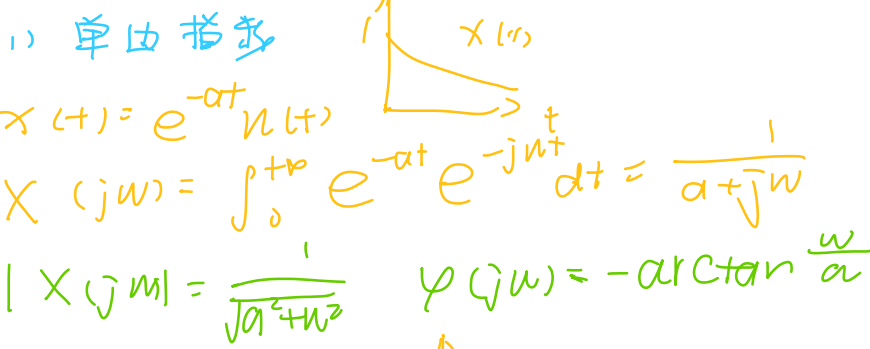 1) 单边指数
1 x(t)
t
x(t) = e^{-at} u(t)
X(jw) = ∫_0^{+∞} e^{-at} e^{-jwt} dt = \frac{1}{a+jw}
|X(jw)| = \frac{1}{\sqrt{a^2+w^2}} φ(jw) = -arctan \frac{w}{a}